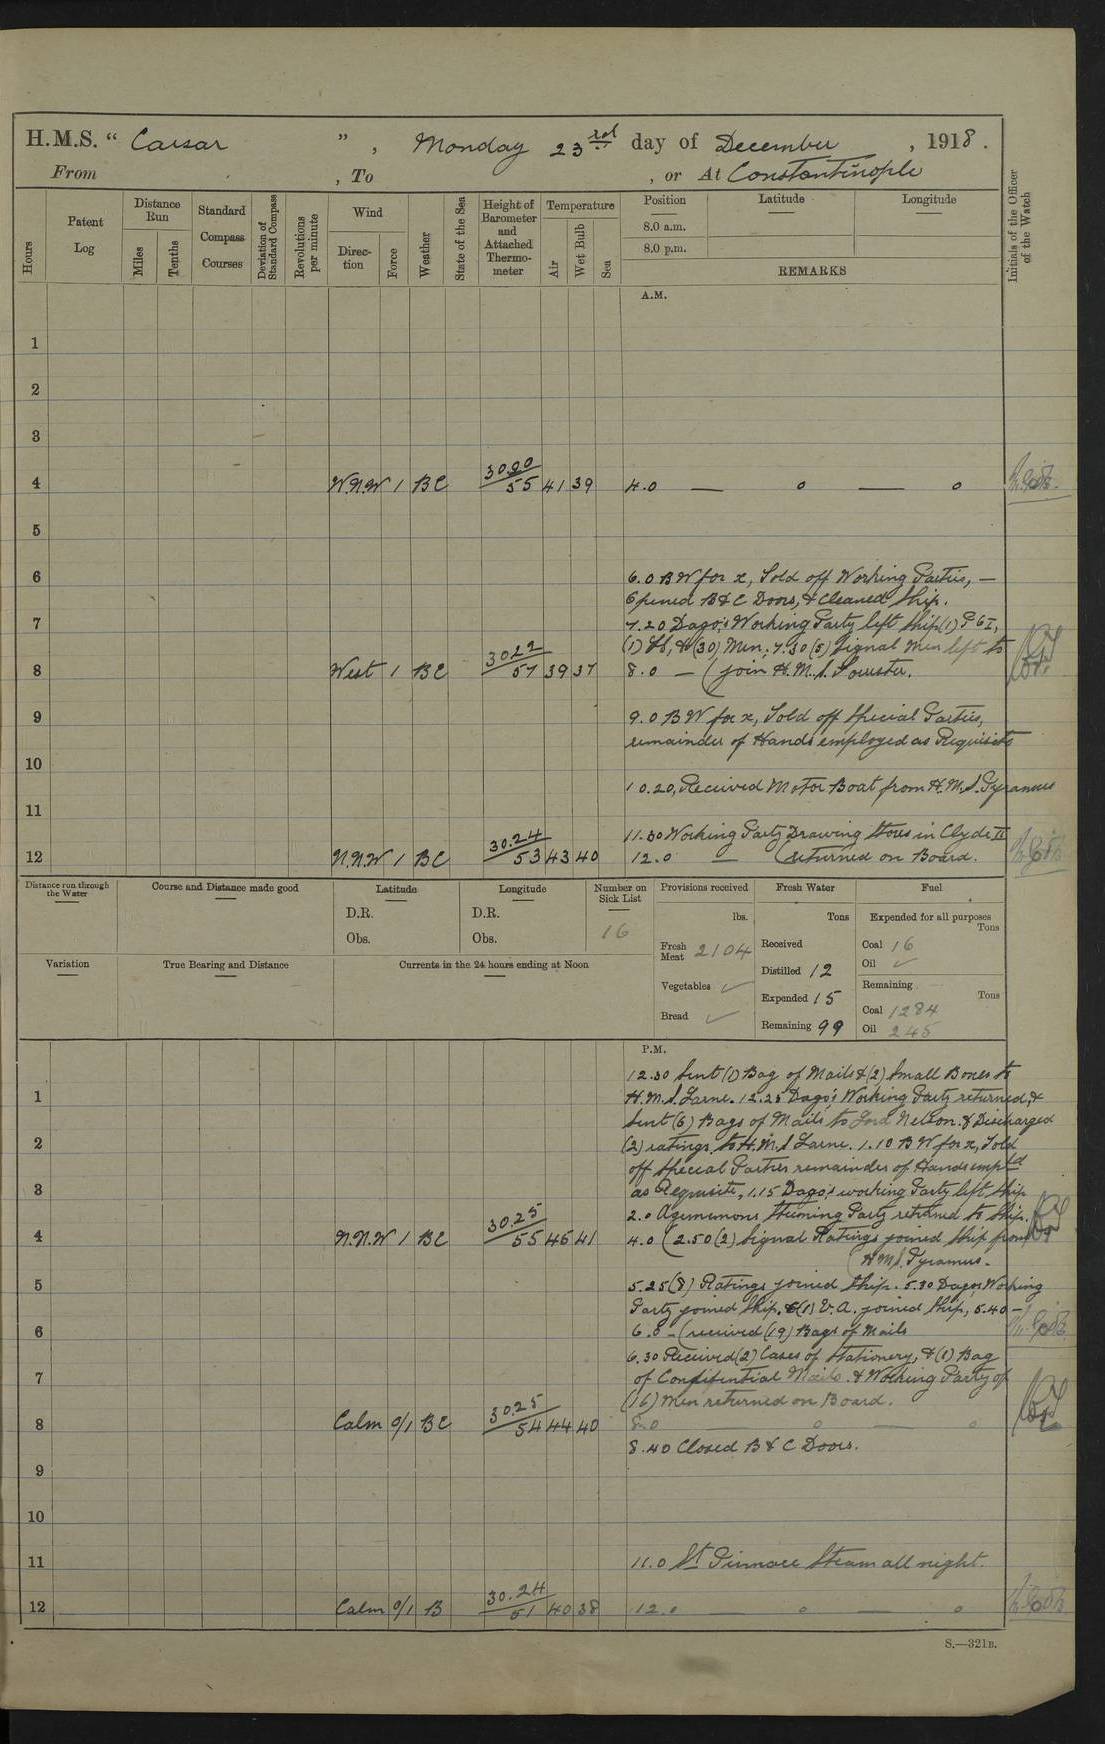 H.M.S. " Caesar ", Monday 23rd day of December, 1918.
From , To , or At Constantinople
Hours
Patent Log
Distance Run
Miles
Tenths
Standard Compass Courses
Deviation of Standard Compass
Revolutions per minute
Wind
Direc-tion
Force
Weather
State of the Sea
Height of Barometer and Attached Thermo-meter
Temperature
Air
Wet Bulb
Sea
Position
8.0 a.m.
8.0 p.m.
Latitude
Longitude
REMARKS
Initials of the Officer of the Watch
A.M.
1
2
3
4 W.N.W 1 BC 30.20 55 41 39 4.0 — o — o
5
6 6.0 BW for x, Told off Working Parties, —
Opened B & C Doors, & Cleaned Ship.
7 7.20 Dago's Working Party left Ship (1) P.O I,
(1) & (30) Men; 7.30 (5) Signal Men left to
8 West 1 BC 30.22 57 39 37 8.0 — (join H.M.S.
9 9.0 BW for x, Told off Special Parties,
remainder of Hands employed as Requisite
10
10.20, Received Motor Boat from H.M.S. Pyramus
11
11.30 Working Party Drawing Stores in Clyde II
12 N.N.W 1 BC 30.24 53 43 40 12.0 — (returned on Board.
Distance run through the Water
Course and Distance made good
Latitude
D.R.
Obs.
Longitude
D.R.
Obs.
Number on Sick List
16
Provisions received
lbs.
Fresh Meat 2104
Vegetables ✓
Bread ✓
Fresh Water
Tons
Received
Distilled 12
Expended 15
Remaining 99
Fuel
Expended for all purposes
Tons
Coal 16
Oil ✓
Remaining
Tons
Coal 1284
Oil 245
Variation
True Bearing and Distance
Currents in the 24 hours ending at Noon
P.M.
12.30 Sent (1) Bag of Mails & (2) Small Boxes to
1 H.M.S. Larne. 12.25 Dago's Working Party returned, &
Sent (6) Bags of Mails to Lord Nelson. & Discharged
2 (2) ratings to H.M.S Larne. 1.10 BW for x, Told
off Special Parties remainder of Hands empld
3 as Requisite, 1.15 Dago's working Party left Ship
2.0 Agememons Steming Party returned to Ship.
4 N.N.W 1 BC 30.25 55 45 41 4.0 (2.50 (2) Signal Ratings joined Ship from
(H.M.S. Pyramus.
5 5.25 (8) Ratings joined Ship. 5.30 Dagos Working
Party joined Ship, & (1) V.A. joined Ship, 5.40 —
6 6.0 — (received (19) Bags of Mails
6.30 Received (2) Cases of Stationery, & (1) Bag
7 of Confidential Mails. & Working Party of
(16) Men returned on Board.
8 Calm 0/1 BC 30.25 54 44 40 8.0 — o — o
8.40 Closed B & C Doors.
9
10
11 11.0 St Pinnace Steam all night.
12 Calm 0/1 B 30.24 51 40 38 12.0 — o — o
S.—321B.